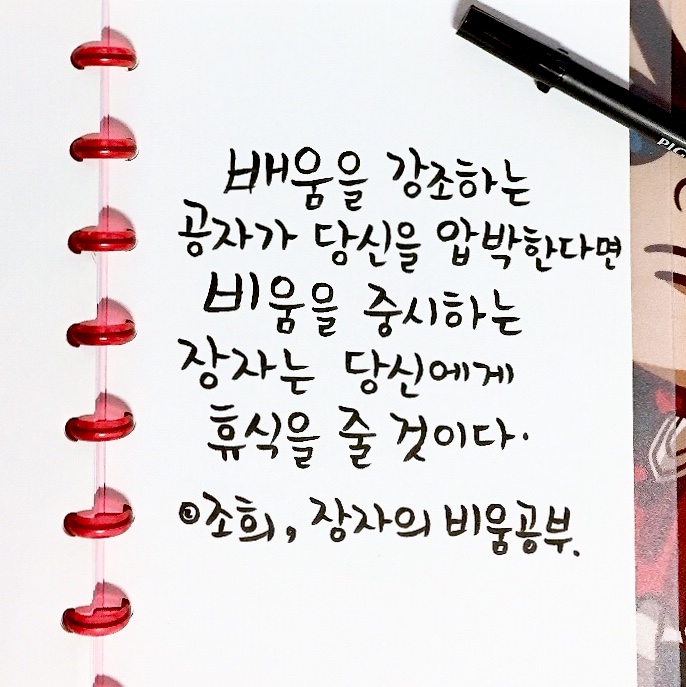 배움을 강조하는
공자가 당신을 압박한다면
비움을 중시하는
장자는 당신에게
휴식을 줄 것이다.
조희, 장자의 비움공부.